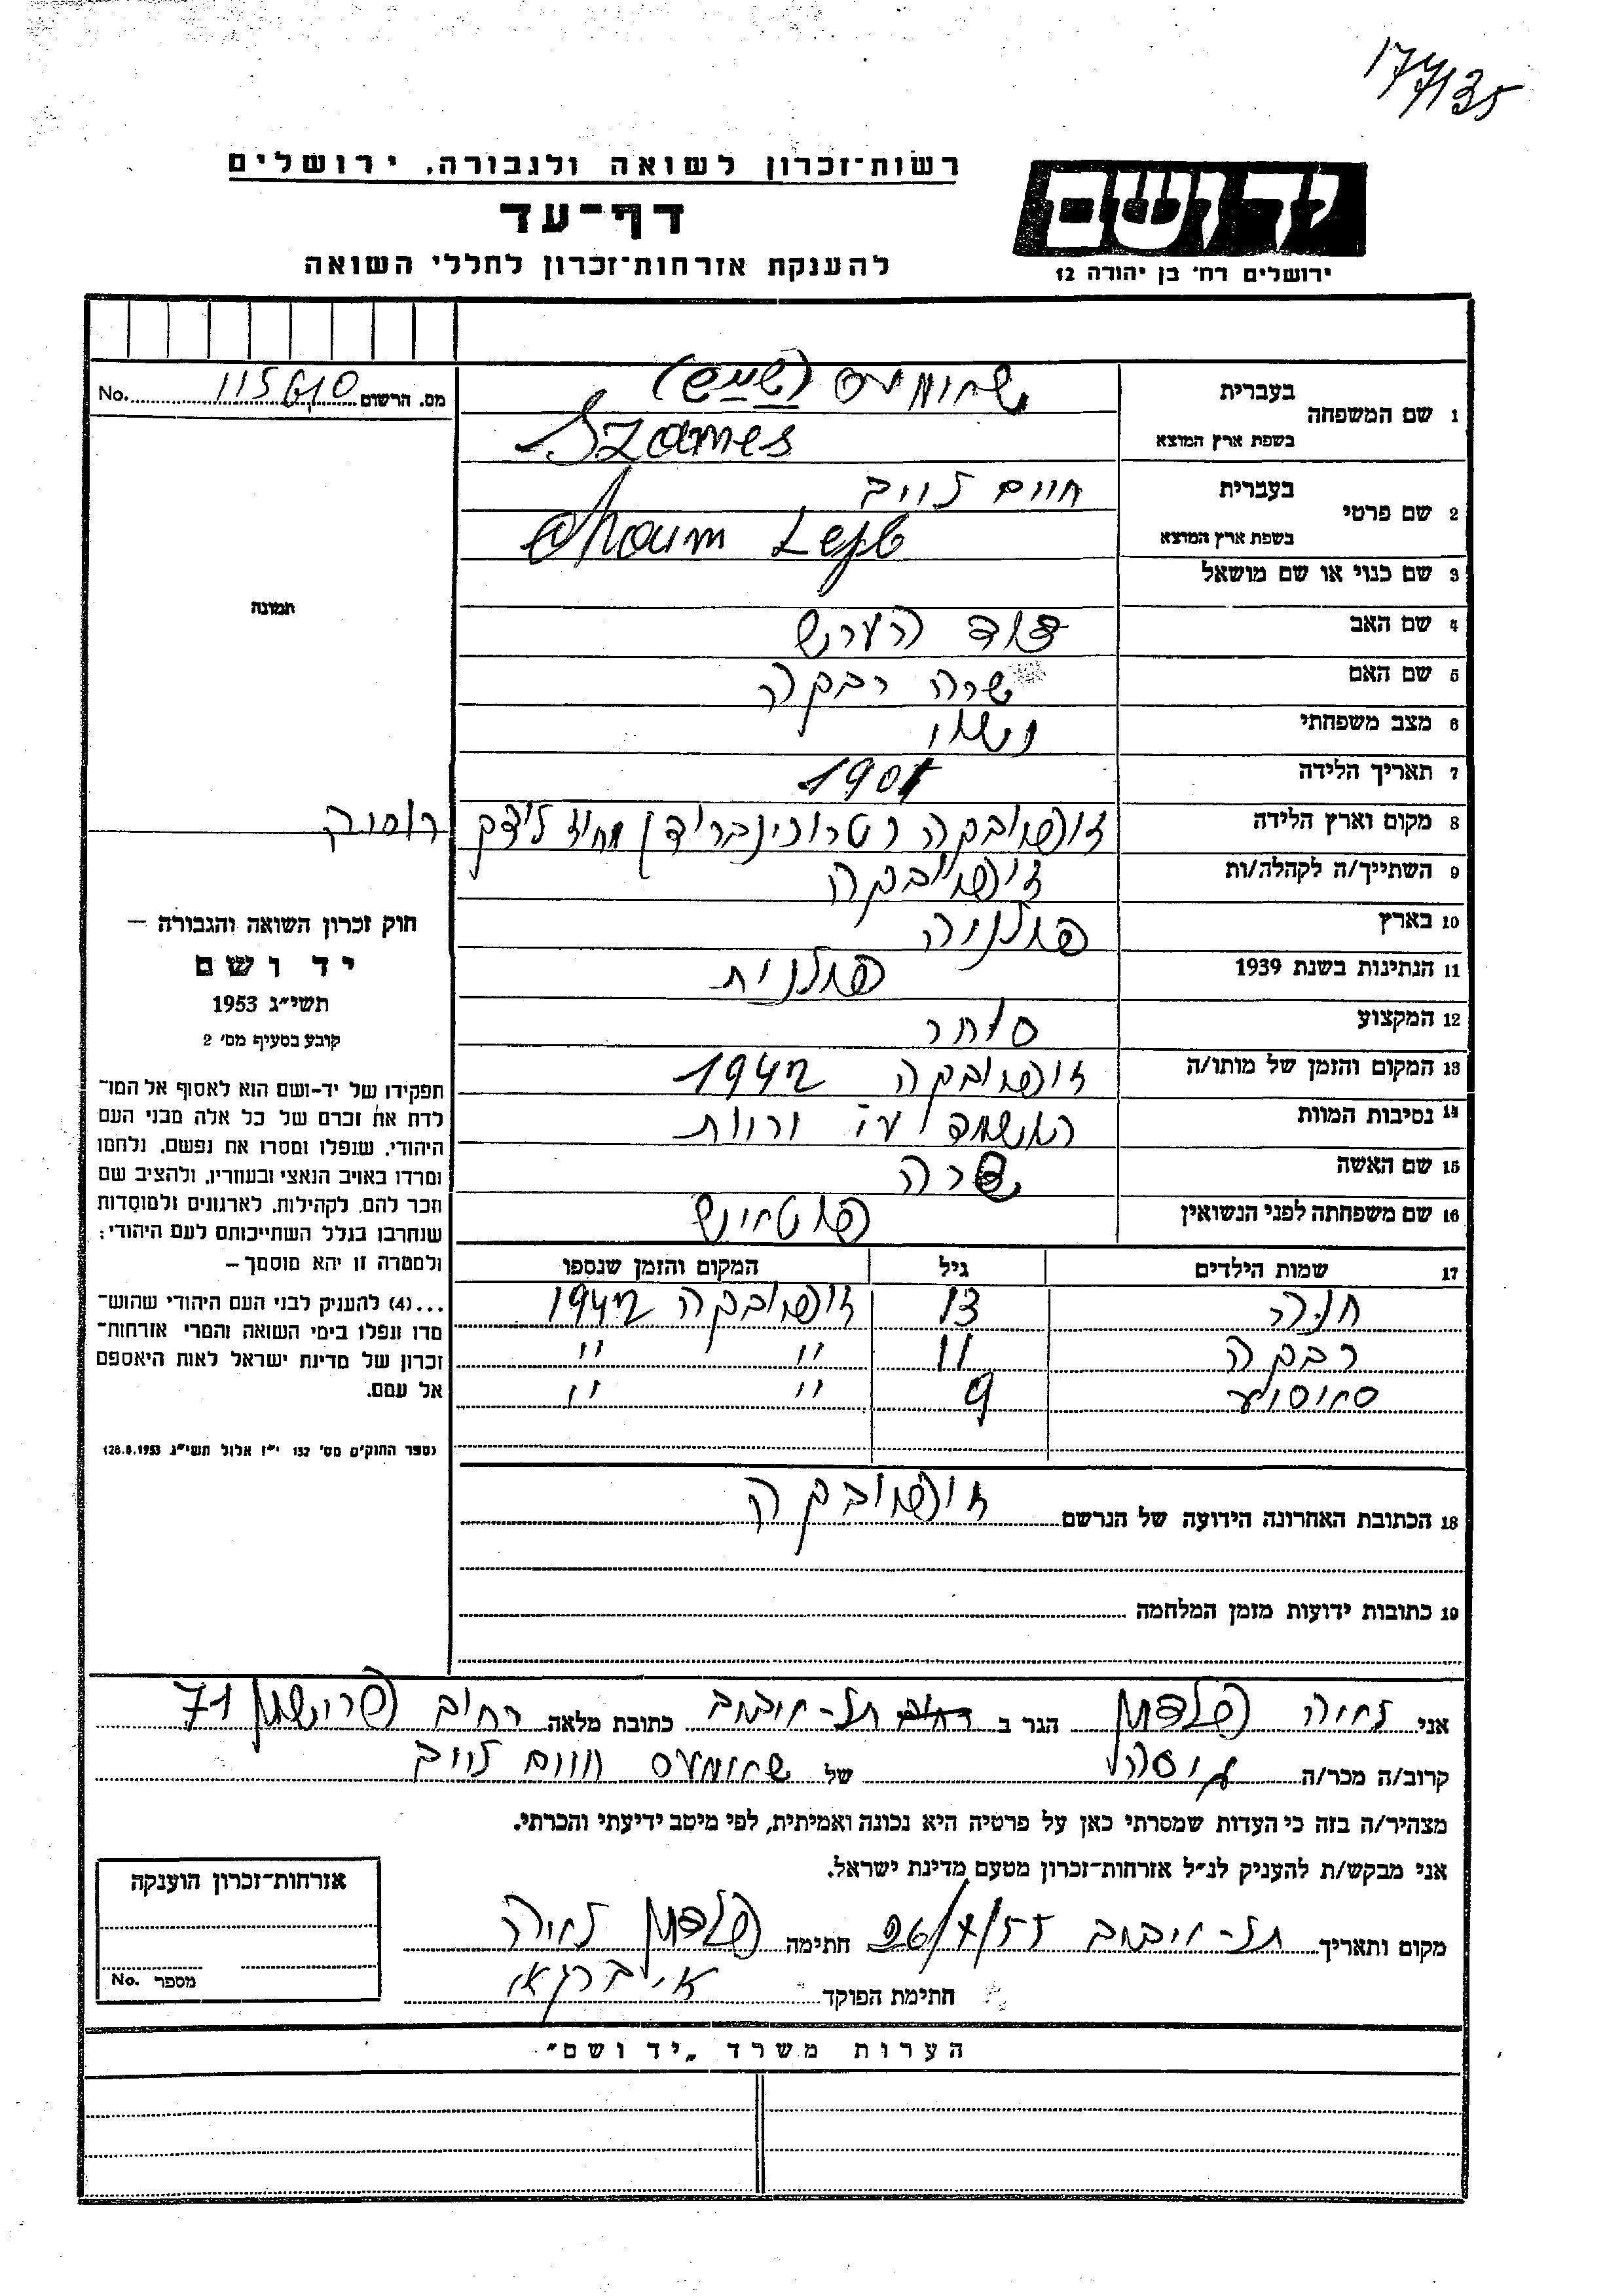 177/135
רשות־זכרון לשואה ולגבורה, ירושלים
דף־עד
להענקת אזרחות־זכרון לחללי השואה
יד ושם
ירושלים רח׳ בן יהודה 12
מס. הרשום 115610 No.
1 שם המשפחה
בעברית (שמש)
בשפת ארץ המוצא Szames
2 שם פרטי
בעברית חיים לייב
בשפת ארץ המוצא Lejb
3 שם כנוי או שם מושאל
4 שם האב דוד הערש
5 שם האם שרה רבקה
6 מצב משפחתי נשוי
7 תאריך הלידה 1901
8 מקום וארץ הלידה זופיובקה מחוז לוצק
9 השתייך/ה לקהלה/ות זופיובקה
10 בארץ פולניה
11 הנתינות בשנת 1939 פולנית
12 המקצוע סוחר
13 המקום והזמן של מותו/ה זופיובקה 1942
14 נסיבות המוות
15 שם האשה שרה
16 שם משפחתה לפני הנשואין
17 שמות הילדים גיל המקום והזמן שנספו
חנה 13 זופיובקה 1942
רבקה 11 " "
9 " "
18 הכתובת האחרונה הידועה של הנרשם זופיובקה
19 כתובות ידועות מזמן המלחמה
תמונה
חוק זכרון השואה והגבורה —
יד ושם
תשי״ג 1953
קובע בסעיף מס׳ 2
תפקידו של יד-ושם הוא לאסוף אל המו־
לדת את זכרם של כל אלה מבני העם
היהודי, שנפלו ומסרו את נפשם, נלחמו
ומרדו באויב הנאצי ובעוזריו, ולהציב שם
וזכר להם, לקהילות, לארגונים ולמוסדות
שנחרבו בגלל השתייכותם לעם היהודי;
ולמטרה זו יהא מוסמך —
...(4) להעניק לבני העם היהודי שהוש־
מדו ונפלו בימי השואה והמרי אזרחות־
זכרון של מדינת ישראל לאות היאספם
אל עמם.
(ספר החוקים מס׳ 132 י״ז אלול תשי״ג 28.8.1953)
אני פלדמן הגר ב תל-אביב כתובת מלאה רחוב פרישמן 71
קרוב/ה מכר/ה גיסה של חיים לייב
מצהיר/ה בזה כי העדות שמסרתי כאן על פרטיה היא נכונה ואמיתית, לפי מיטב ידיעתי והכרתי.
אני מבקש/ת להעניק לנ״ל אזרחות־זכרון מטעם מדינת ישראל.
מקום ותאריך תל-אביב 26/7/55 חתימה פלדמן
חתימת הפוקד
אזרחות־זכרון הוענקה
מספר No.
הערות משרד „יד ושם״